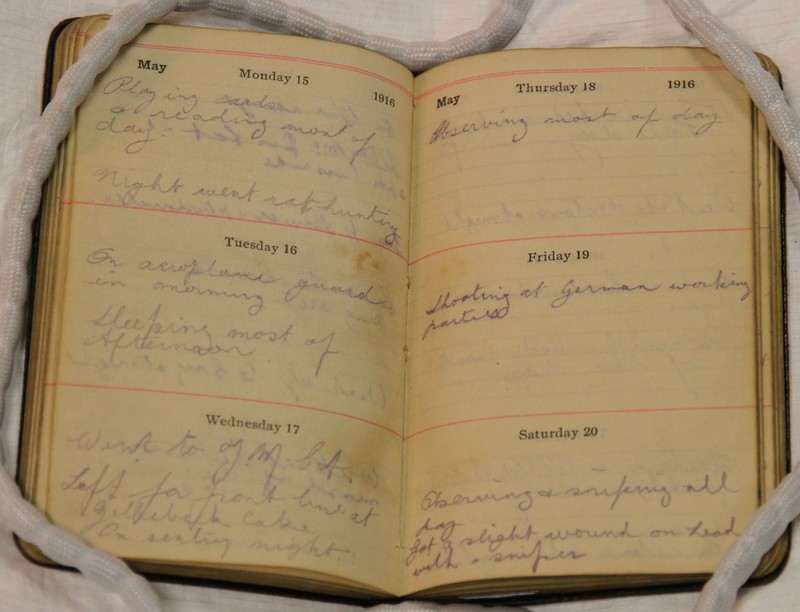 May Monday 15 1916
Playing cards
& reading most of
day.
Night went rat hunting
Tuesday 16
On aeroplane guard
in morning
Sleeping most of
Afternoon
Wednesday 17
Went to Y.M.C.A.
Left for front line at
Cake
On sentry night.
May Thursday 18 1916
Observing most of day
Friday 19
Shooting at German working
parties
Saturday 20
Observing & sniping all
day
Got a slight wound on head
with a sniper